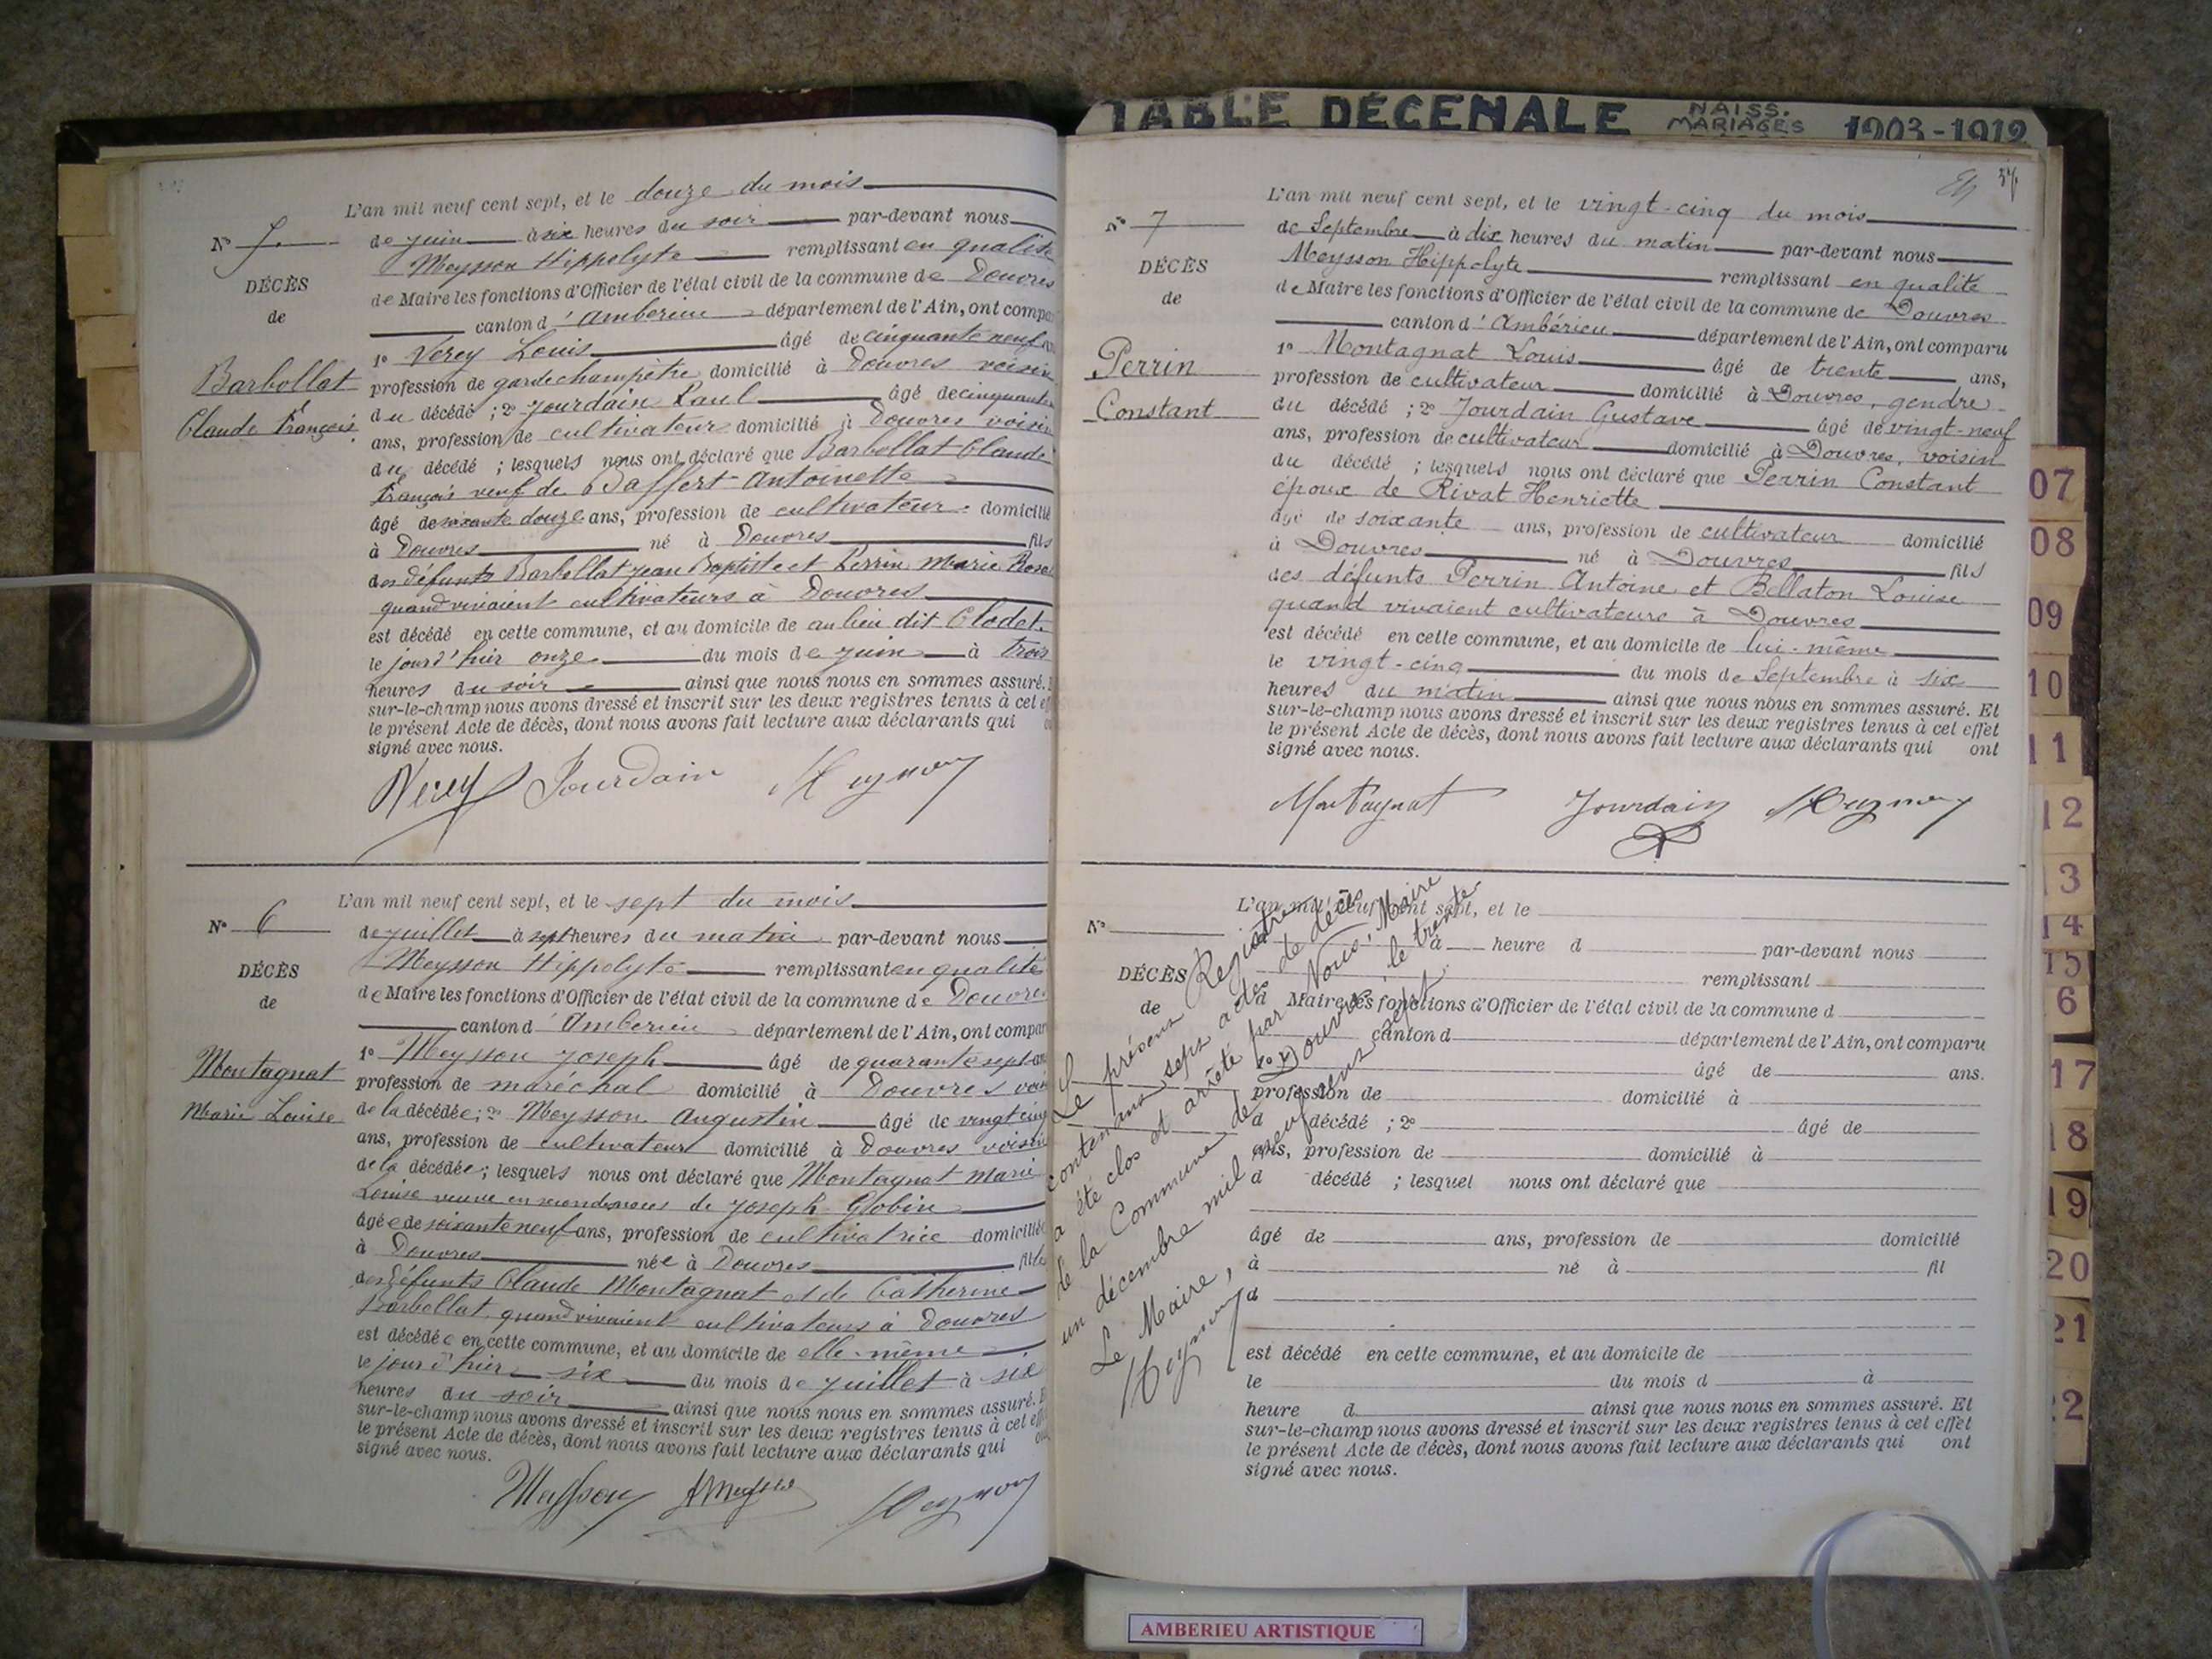 TABLE DÉCENALE NAISS. MARIAGES 1903-1912
L'an mil neuf cent sept, et le douze du mois
N° 5
de juin à six heures du soir par-devant nous
Meysson Hippolyte remplissant en qualité
DÉCÈS
de Maire les fonctions d'Officier de l'état civil de la commune de Douvres
de
canton d'Ambérieu département de l'Ain, ont compa
1° Verey Louis âgé de cinquante neuf
Barbollat
profession de garde champêtre domicilié à Douvres voisin
Claude François
du décédé ; 2° Jourdain Paul âgé de cinquante
ans, profession de cultivateur domicilié à Douvres voisin
du décédé ; lesquels nous ont déclaré que Barbollat Claude
François veuf de Baffert Antoinette
âgé de soixante douze ans, profession de cultivateur domicilié
à Douvres né à Douvres fils
des défunts Barbollat jean Baptiste et Perrin Marie Rose
quand vivaient cultivateurs à Douvres
est décédé en cette commune, et au domicile de au lieu dit Clodet
le jour d'hier onze du mois de juin à trois
heures du soir ainsi que nous nous en sommes assuré.
sur-le-champ nous avons dressé et inscrit sur les deux registres tenus à cet ef
le présent Acte de décès, dont nous avons fait lecture aux déclarants qui
signé avec nous.
Verey Jourdain HMeysson
L'an mil neuf cent sept, et le sept du mois
N° 6
de juillet à sept heures du matin par-devant nous
Meysson Hippolyte remplissant en qualité
DÉCÈS
de Maire les fonctions d'Officier de l'état civil de la commune de Douvres
de
canton d'Ambérieu département de l'Ain, ont compar
1° Meysson Joseph âgé de quarante sept ans
Montagnat
profession de maréchal domicilié à Douvres vois
Marie Louise
de la décédée ; 2° Meysson Augustin âgé de vingt cinq
ans, profession de cultivateur domicilié à Douvres voisin
de la décédée ; lesquels nous ont déclaré que Montagnat Marie
Louise veuve en secondes noces de Joseph Globin
âgée de soixante neuf ans, profession de cultivatrice domiciliée
à Douvres née à Douvres fille
des défunts Claude Montagnat et de Catherine
Barbollat quand vivaient cultivateurs à Douvres
est décédée en cette commune, et au domicile de elle-même
le jour d'hier six du mois de juillet à six
heures du soir ainsi que nous nous en sommes assuré.
sur-le-champ nous avons dressé et inscrit sur les deux registres tenus à cet eff
le présent Acte de décès, dont nous avons fait lecture aux déclarants qui
signé avec nous.
Meysson AMeysson HMeysson
57
L'an mil neuf cent sept, et le vingt-cinq du mois
N° 7
de Septembre à dix heures du matin par-devant nous
Meysson Hippolyte remplissant en qualité
DÉCÈS
de Maire les fonctions d'Officier de l'état civil de la commune de Douvres
de
canton d'Ambérieu département de l'Ain, ont comparu
1° Montagnat Louis âgé de trente ans,
Perrin
profession de cultivateur domicilié à Douvres, gendre
Constant
du décédé ; 2° Jourdain Gustave âgé de vingt-neuf
ans, profession de cultivateur domicilié à Douvres, voisin
du décédé ; lesquels nous ont déclaré que Perrin Constant
époux de Rivat Henriette
âgé de soixante ans, profession de cultivateur domicilié
à Douvres né à Douvres fils
des défunts Perrin Antoine et Bellaton Louise
quand vivaient cultivateurs à Douvres
est décédé en cette commune, et au domicile de lui-même
le vingt-cinq du mois de Septembre à six
heures du matin ainsi que nous nous en sommes assuré. Et
sur-le-champ nous avons dressé et inscrit sur les deux registres tenus à cet effet
le présent Acte de décès, dont nous avons fait lecture aux déclarants qui ont
signé avec nous.
Montagnat Jourdain HMeysson
L'an mil neuf cent sept, et le
N°
à heure d par-devant nous
DÉCÈS
remplissant
de
d Maire les fonctions d'Officier de l'état civil de la commune d
canton d département de l'Ain, ont comparu
1° âgé de ans.
profession de domicilié à
d décédé ; 2° âgé de
ans, profession de domicilié à
d décédé ; lesquel nous ont déclaré que
âgé de ans, profession de domicilié
à né à fil
d
est décédé en cette commune, et au domicile de
le du mois d à
heure d ainsi que nous nous en sommes assuré. Et
sur-le-champ nous avons dressé et inscrit sur les deux registres tenus à cet effet
le présent Acte de décès, dont nous avons fait lecture aux déclarants qui ont
signé avec nous.
Le présent Registre
contenant sept actes de décès
a été clos et arrêté par Nous, Maire
de la Commune de Douvres, le trente
un décembre mil neuf cent sept
Le Maire,
HMeysson
07
08
09
10
11
12
3
14
15
6
17
18
19
20
21
22
AMBERIEU ARTISTIQUE